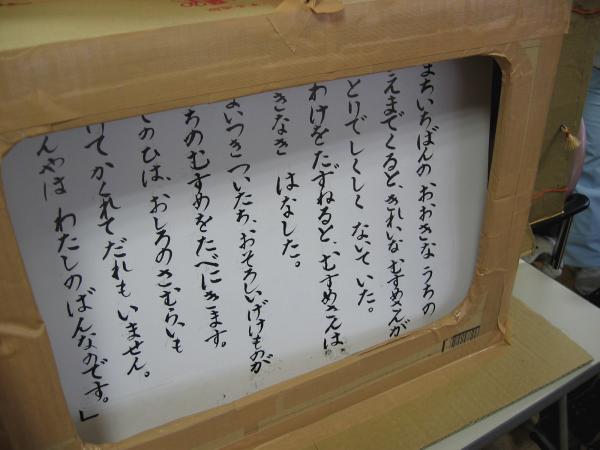 まちいちばんの おおきな うちの
えまでくると、きれいな むすめさんが
とりでしくしく ないていた。
わけをたずねると、むすめさんは、
きなき はなした。
いつきついたち、おそろしいばけものが
ちのむすめをたべにきます。
のひは、おしろのさむらいも
りて かくれてだれも いません。
んやは わたしのばんなのです。」